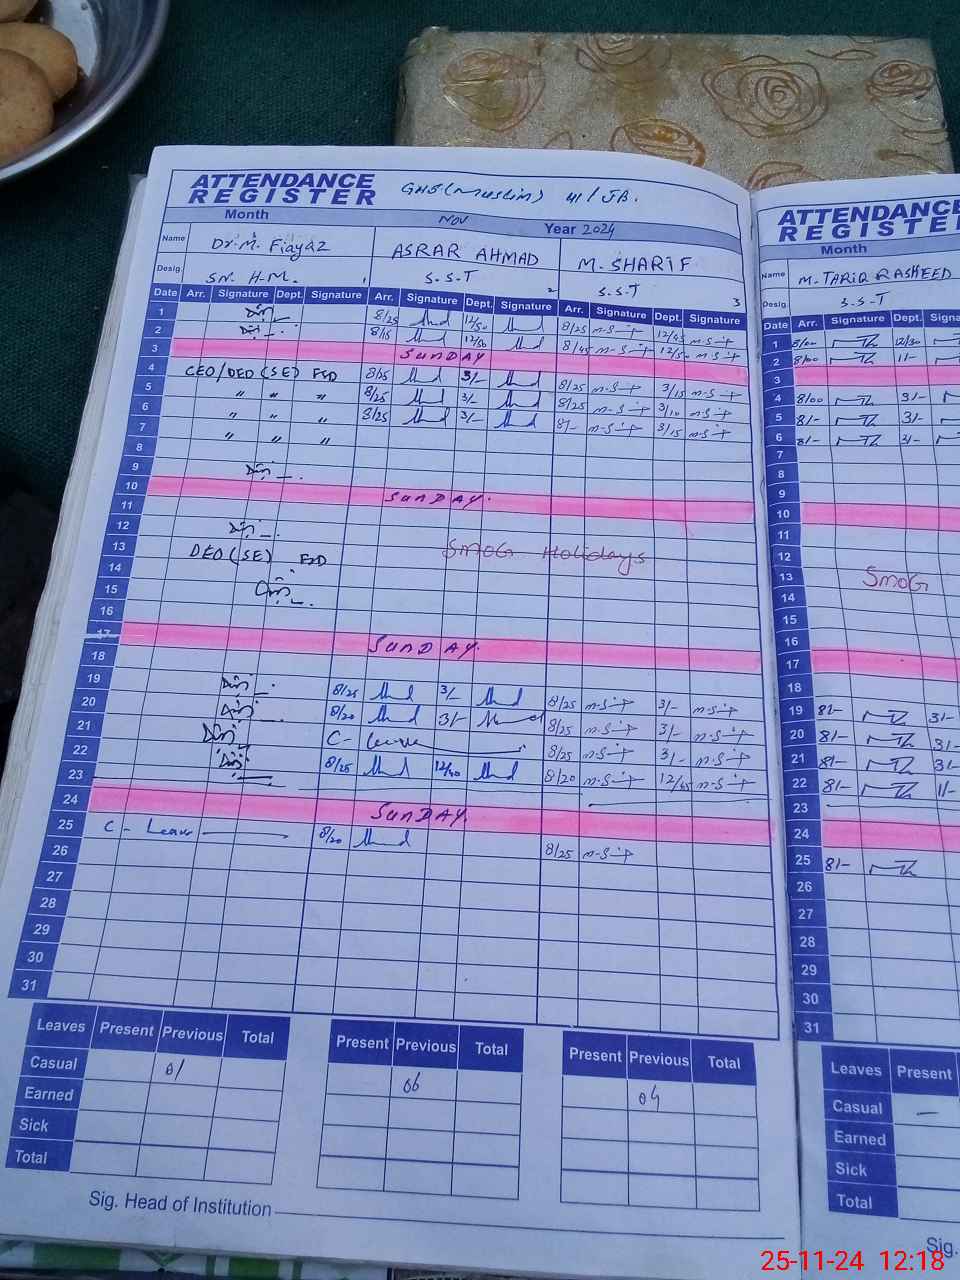 ATTENDANCE REGISTER GHS (Muslim) 41/JB.
Month Nov Year 2024
Name Dr. M. Fiayaz ASRAR AHMAD M. SHARIF
Desig. Sn. H.M. 1 S.S.T 2 S.S.T 3
Date Arr. Signature Dept. Signature Arr. Signature Dept. Signature Arr. Signature Dept. Signature
1 8/25 12/50 8/25 m-S 12/45 m-S
2 8/15 12/50 8/45 m-S 12/50 m-S
3 SUNDAY
4 CEO/DEO (SE) FSD 8/25 3/- 8/25 m-S 3/15 m-S
5 " " " 8/25 3/- 8/25 m-S 3/10 m-S
6 " " " 8/25 3/- 8/- m-S 3/15 m-S
7 " " "
8
9
10 SUNDAY.
11
12
13 DEO (SE) FSD SMOG Holidays
14
15
16
17 SUNDAY.
18
19 8/25 3/- 8/25 m-S 3/- m-S
20 8/20 3/- 8/25 m-S 3/- m-S
21 C- leave 8/25 m-S 3/- m-S
22 8/25 12/40 8/20 m-S 12/45 m-S
23
24 SUNDAY.
25 C - Leave 8/20 8/25 m-S
26
27
28
29
30
31
Leaves Present Previous Total Present Previous Total Present Previous Total
Casual 01 06 04
Earned
Sick
Total
Sig. Head of Institution
ATTENDANCE
REGISTER
Month
Name M. TARIQ RASHEED
Desig. S.S.T
Date Arr. Signature Dept.
1 8/00 12/30
2 8/00 11/-
3
4 8/00 3/-
5 8/- 3/-
6 8/- 3/-
7
8
9
10
11
12
13 SMOG
14
15
16
17
18
19 8/- 3/-
20 8/- 3/-
21 8/- 3/-
22 8/- 11/-
23
24
25 8/-
26
27
28
29
30
31
Leaves Present
Casual —
Earned
Sick
Total
Sig.
25-11-24 12:18